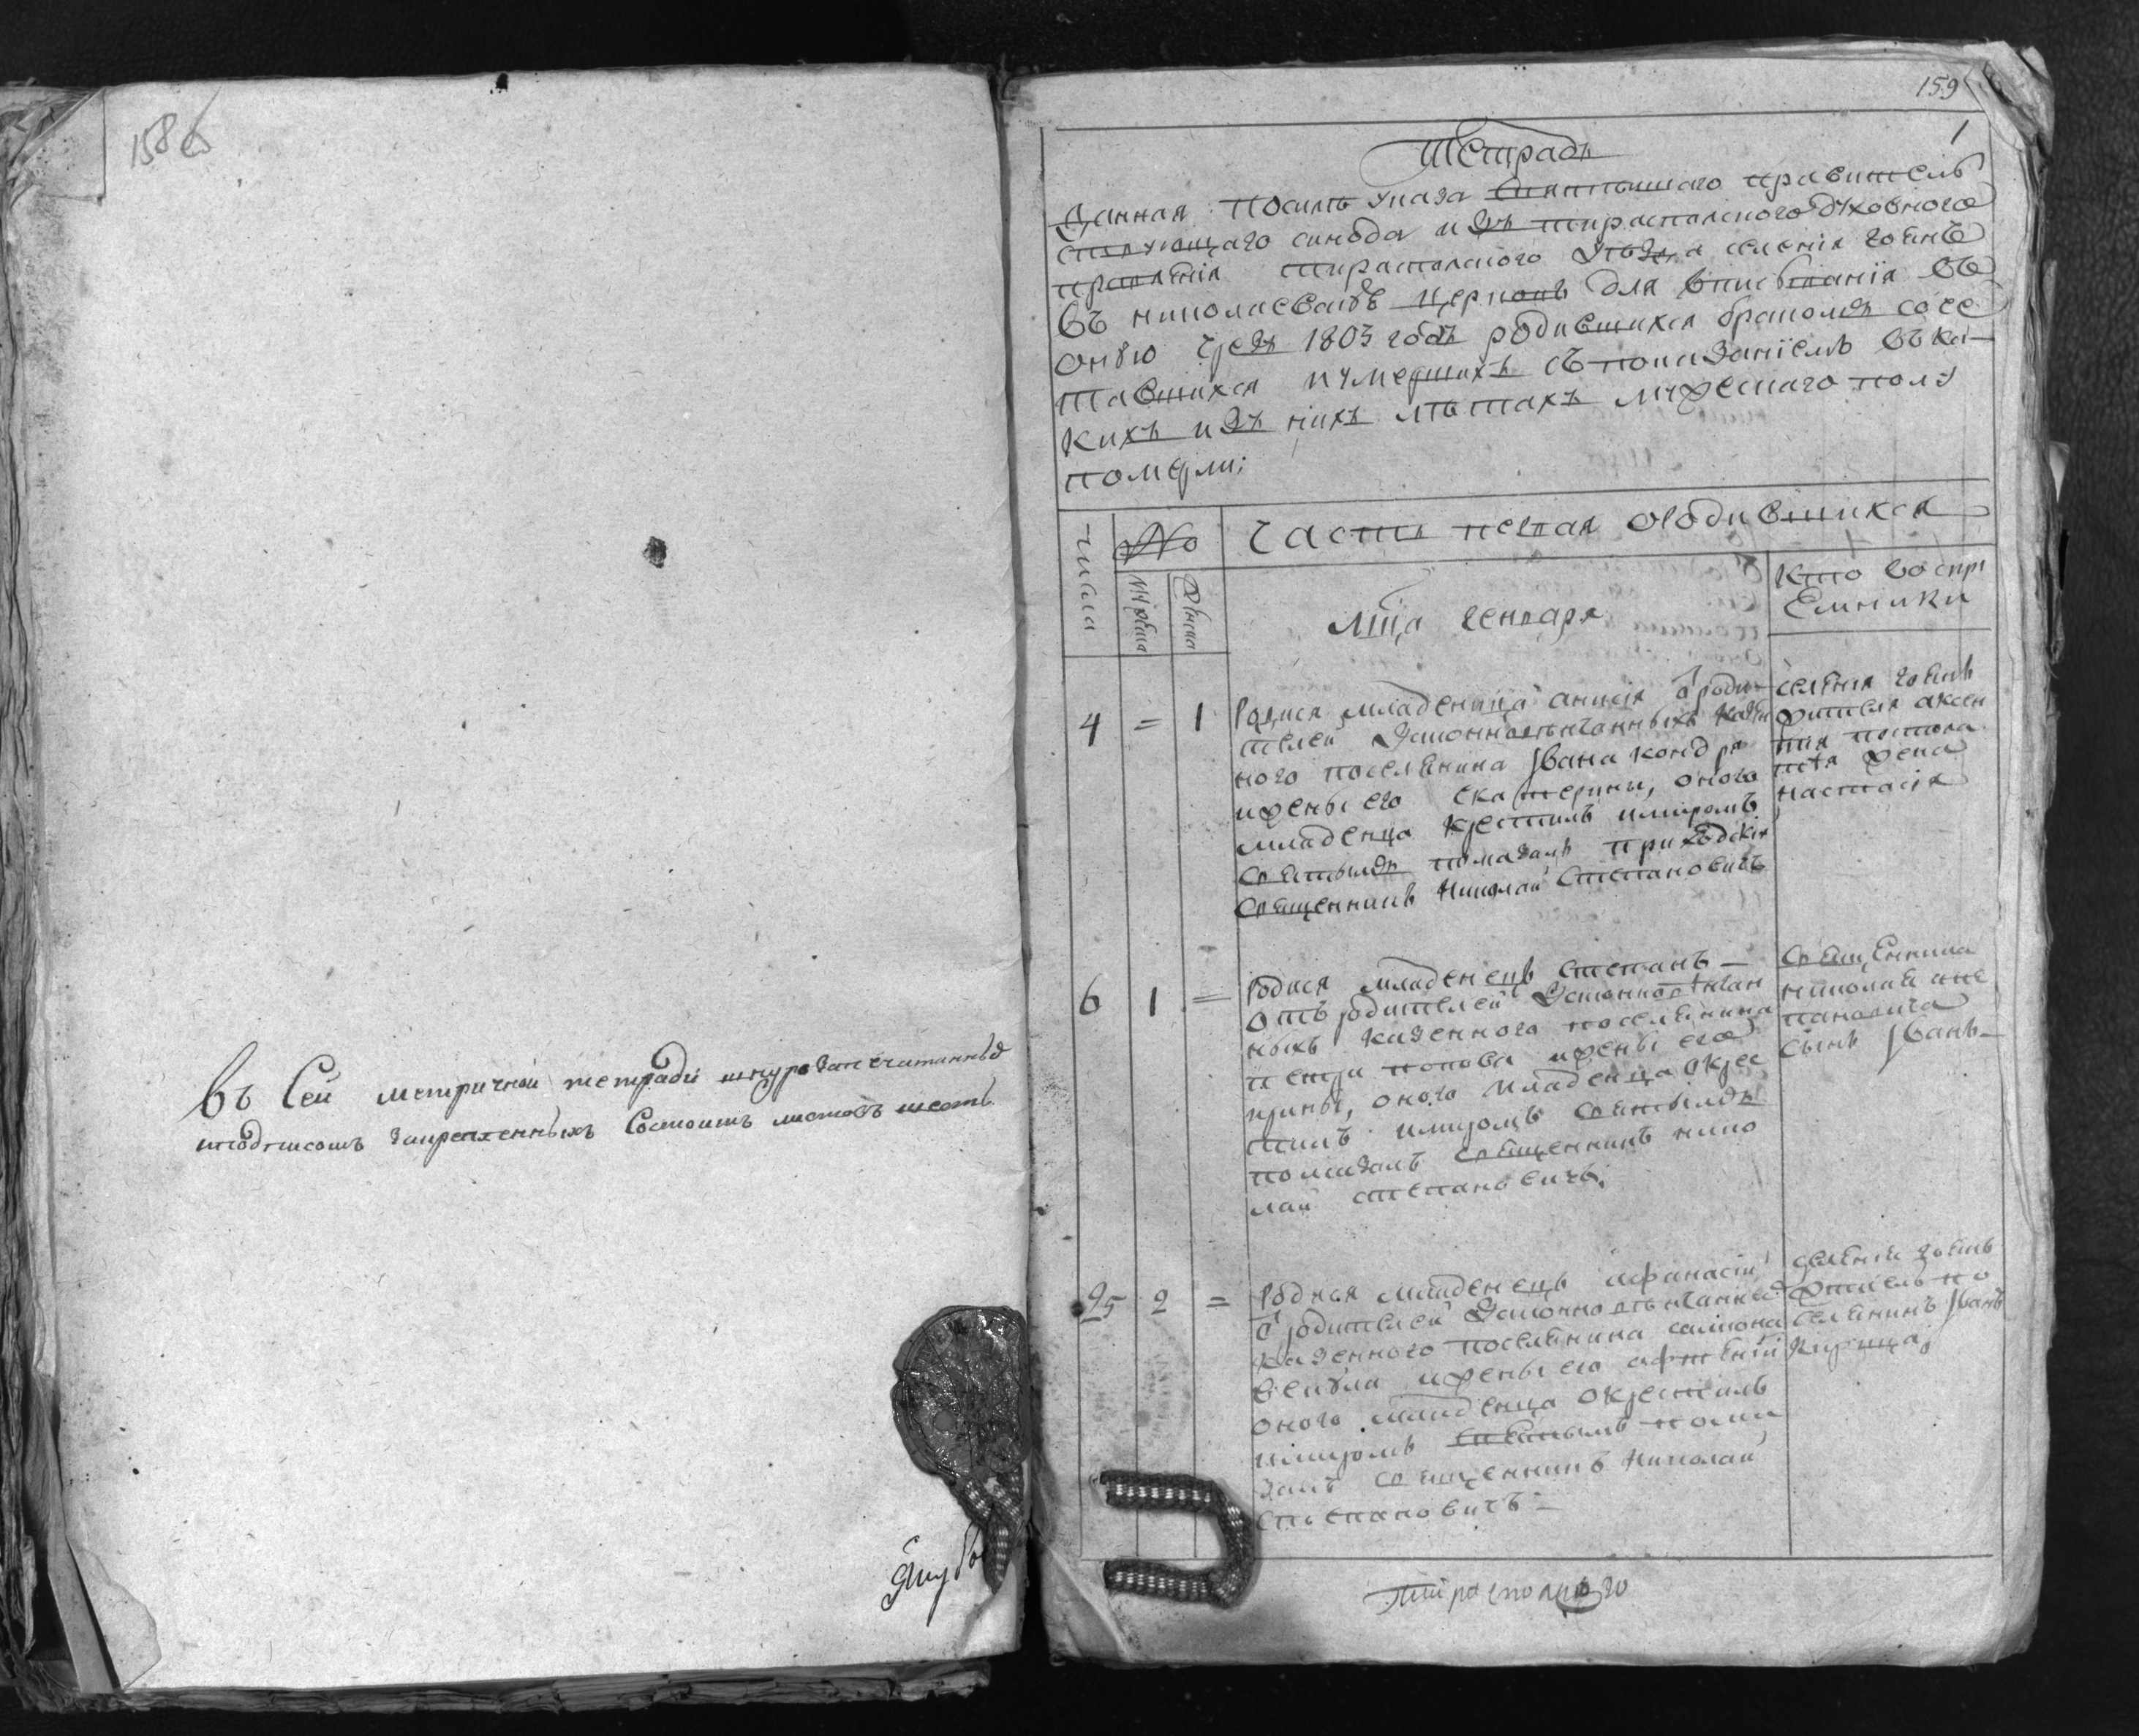 158 об
Въ Сей метричной тетради шнурозапечатанныхъ
иподписомъ закрепленныхъ Состоитъ листовъ шесть
159
1
Тетрадь
Данная посилѣ указа Святѣйшаго правитель
ствующаго синода изъ тираспольского духовного
правленія тираспольского уѣзда селенія гоянъ
въ николаевскую церковь для вписыванія въ
оную чрезъ 1803 годъ родившихся бракомъ соче
тавшихся иумершихъ съ показаніемъ въ ка-
кихъ изъ нихъ лѣтахъ мужескаго полу
померли;
числа
№
Часть первая ородившихся
мужеска
женска
мца генваря
Кто воспри
Емники
4 = 1
Родися младеница анисія ѿ роди-
телей Законновѣнчанныхъ казен
ного поселянина Ивана кондра
ижены его екатерины, оного
младенца крестилъ имиромъ
святымъ помазалъ приходскій
священникъ Николай Степановичъ
селенія гоянъ
жителя аксен
тія
жена
настасія
6 1 =
Родися младенецъ Степанъ —
Отъ родителей Законновѣнчан
ныхъ казенного поселянина
петра попова ижены его
ирины, оного младенца окрес
тилъ имиромъ святымъ
помазалъ священникъ нико
лай степановичъ.
священника
николая сте
пановича
сынъ Иванъ —
25 2 =
Родися младенецъ афанасій
ѿ родителей Законновѣнчанныхъ
казенного поселянина
ижены его
оного младенца окрестилъ
имиромъ святымъ пома
залъ священникъ Николай
степановичъ —
селенія гоянъ
житель по
селянинъ Иванъ
Тираспольского